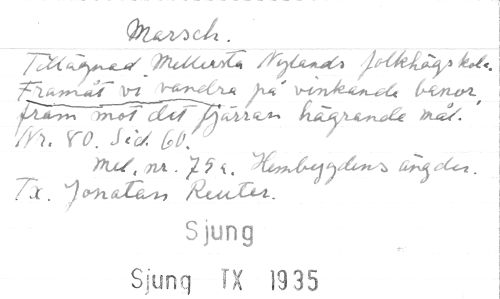 Marsch.
Tillägnad Mellersta Nylands folkhögskola.
Framåt vi vandra på vinkande banor,
fram mot det fjärran hägrande mål.
Nr. 80. Sid. 60.
Mel. nr. 79a. Hembygdens ängder.
Tx. Jonatan Reuter.
Sjung
Sjung TX 1935